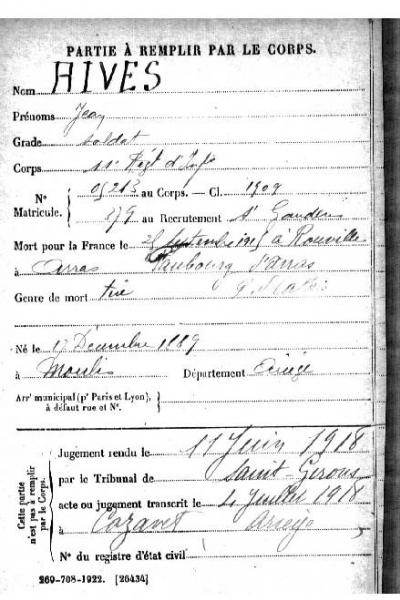 PARTIE À REMPLIR PAR LE CORPS.
Nom AIVES
Prénoms Jean
Grade soldat
Corps 11e Régt d'Infie
No Matricule. 05213 au Corps. — Cl. 1909
279 au Recrutement St Gaudens
Mort pour la France le 25 septembre 1915 à Ronville
à Arras Faubourg d'Arras
Genre de mort tué
Né le 17 Décembre 1889
à Moulis Département Ariège
Arrt municipal (pr Paris et Lyon), à défaut rue et No.
Cette partie n'est pas à remplir par le Corps.
Jugement rendu le 11 Juin 1918
par le Tribunal de Saint Girons
acte ou jugement transcrit le 4 Juillet 1918
à Cazavet Ariège
No du registre d'état civil
269-708-1922. [26434]